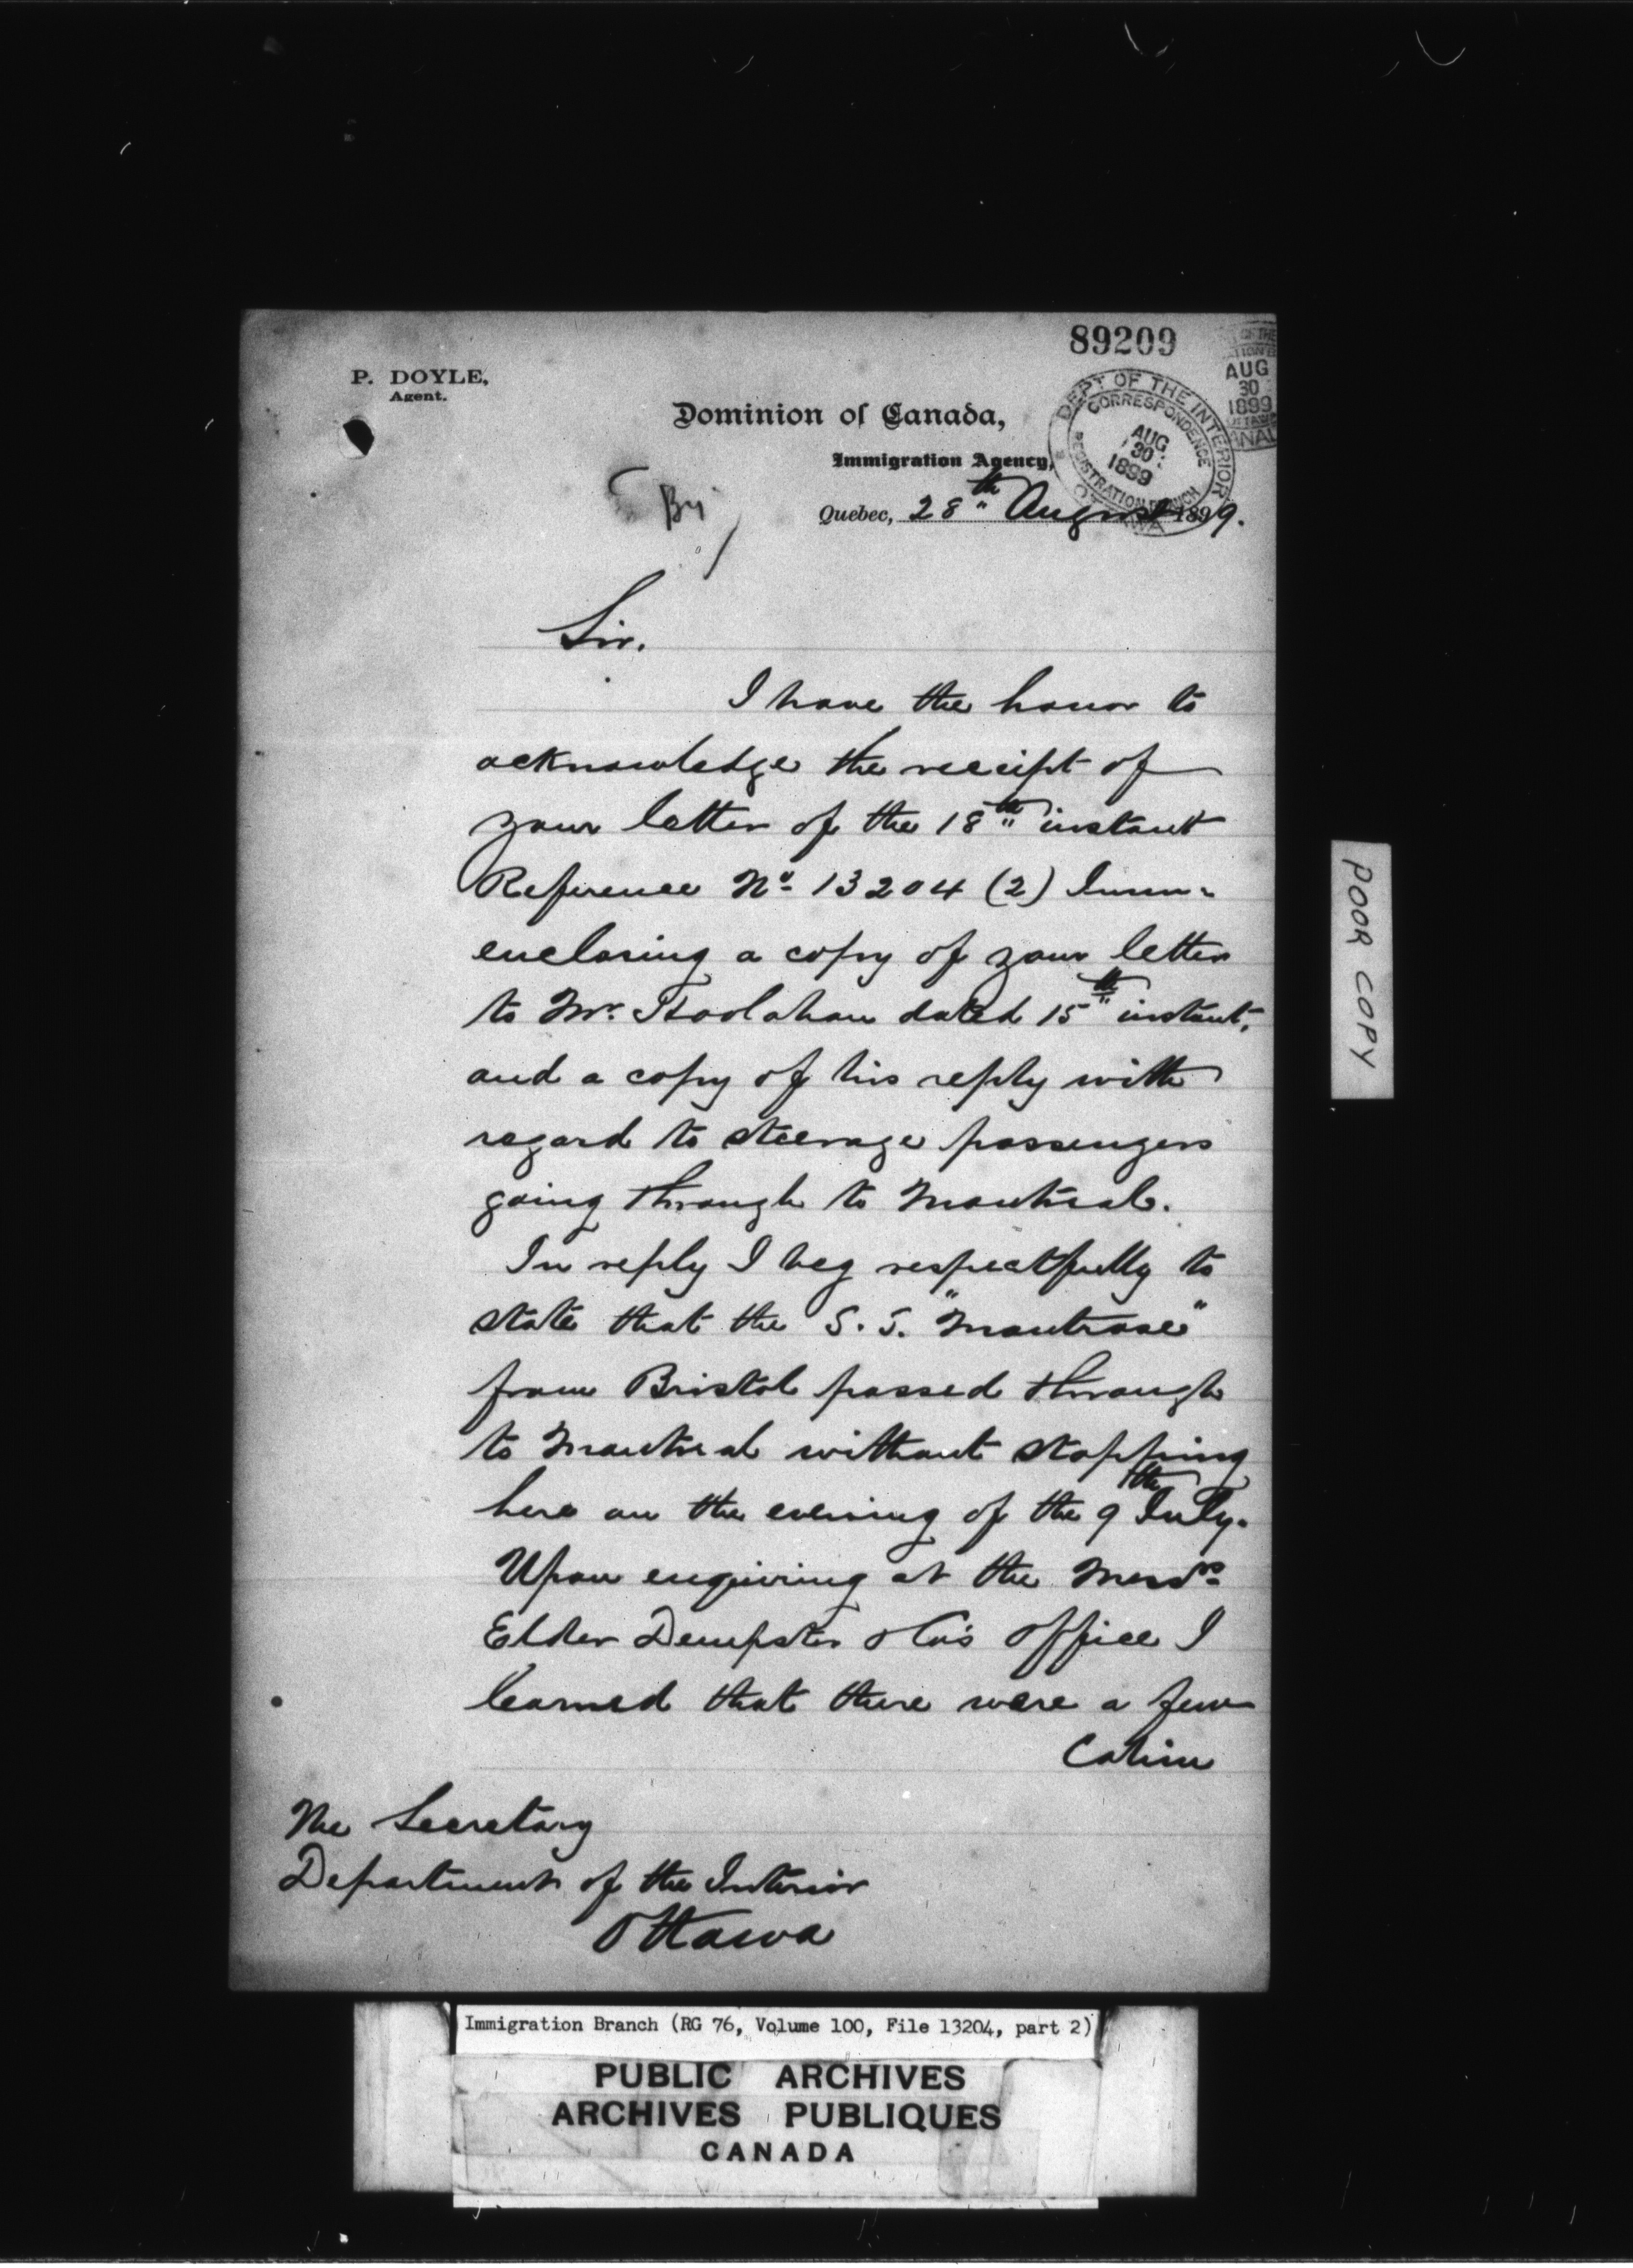 89209
P. DOYLE,
Agent.
OF THE
AUG
30
1899
DEPT OF THE INTERIOR
CORRESPONDENCE
AUG
30
1899
REGISTRATION BRANCH
OTTAWA
Dominion of Canada,
Immigration Agency,
By
Quebec, 28th August 1899.
Sir.
I have the honor to
acknowledge the receipt of
your letter of the 18th instant
Reference No. 13204 (2) Imm.
enclosing a copy of your letter
to Mr. Hoolahan dated 15th instant,
and a copy of his reply with
regard to steerage passengers
going through to Montreal.
In reply I beg respectfully to
state that the S.S. "Montrose"
from Bristol passed through
to Montreal without stopping
here on the evening of the 9th July.
Upon enquiring at the Messrs
Elder Dempster & Co's Office I
learned that there were a few
Cabin
The Secretary
Department of the Interior
Ottawa
POOR COPY
Immigration Branch (RG 76, Volume 100, File 13204, part 2)
PUBLIC ARCHIVES
ARCHIVES PUBLIQUES
CANADA